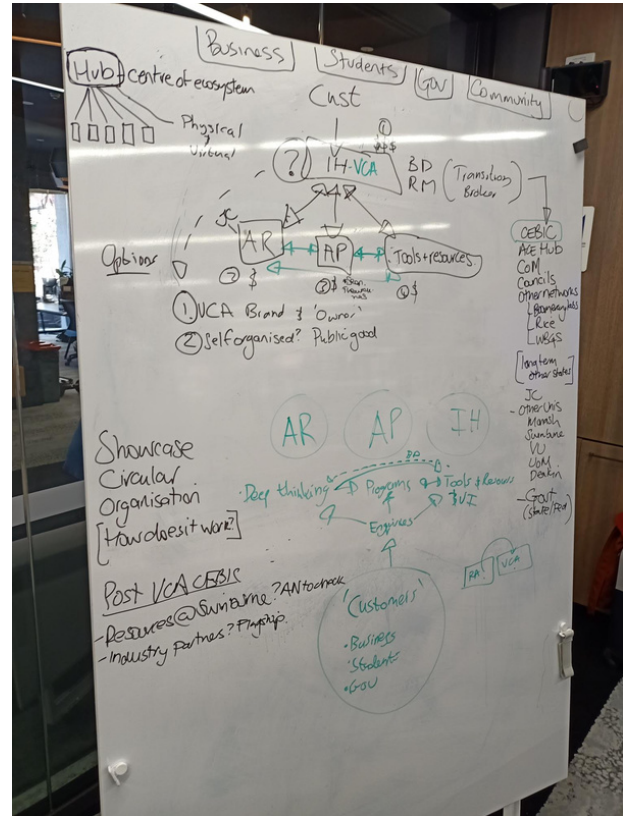 Business
Students
Gov
Community
Hub
centre of ecosystem
Physical
Virtual
Cust
?
IH-VCA
① $
BD
RM
(Transition
Broker)
JC
AR
AP
Tools+resources
② $
③ $
④ $
Options
① VCA Brand & 'Owner'
② Self organised? Public good
CEBIC
ACE Hub
CoM
Councils
Other networks
Rice
WBGS
[long term
other states]
JC
- Other Unis
Monash
Swinburne
VU
UoM
Deakin
- Govt
(State/Fed)
AR
AP
IH
Showcase
Circular
Organisation
[How does it work?]
• Deep thinking
Programs
• Tools + Resources
Enquires
RA
VCA
Post VCA CEBIC
- Resources @ Swinburne? AN to check
- Industry Partners? Flagship.
'Customers'
• Business
• Student
• GOV